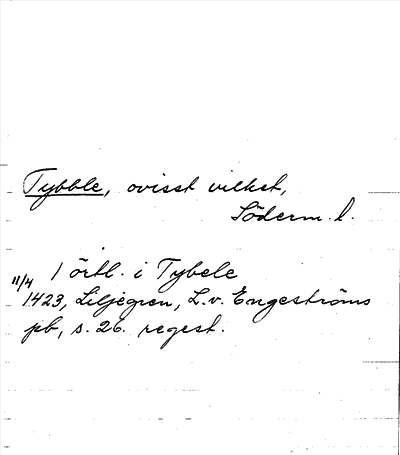 Tybble, ovisst vilket,
Söderm. l.
1 örtl. i Tybele
11/4 1423, Liljegren, L. v. Engeströms
pb, s. 26. regest.